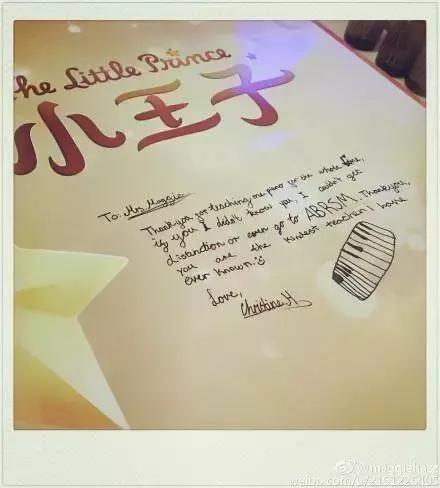 The Little Prince
小王子
To: Mrs. Maggie
Thankyou for teaching me piano for the whole time,
if you I didn't know you, I couldn't get
distinction or even go to ABRSM. Thankyou,
you are the kindest teacher I have
ever known.
Love,
Christine.H
weibo.com/u/2161226495